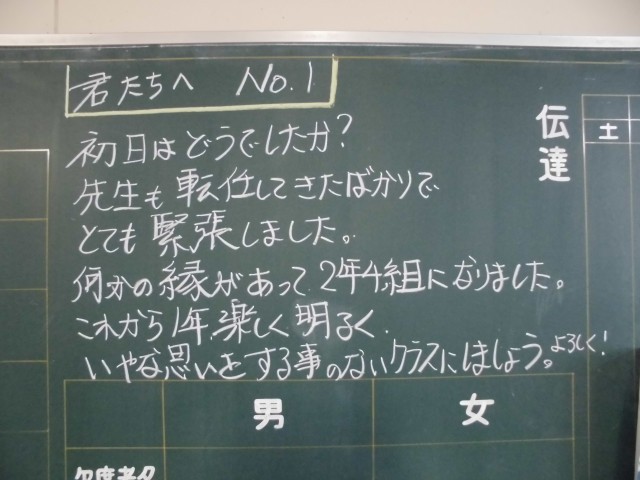 君たちへ No.1
初日はどうでしたか?
先生も転任してきたばかりで
とても緊張しました。
何かの縁があって2年4組になりました。
これから1年、楽しく明るく、
いやな思いをする事のないクラスにしましょう。よろしく!
伝達
土
男 女